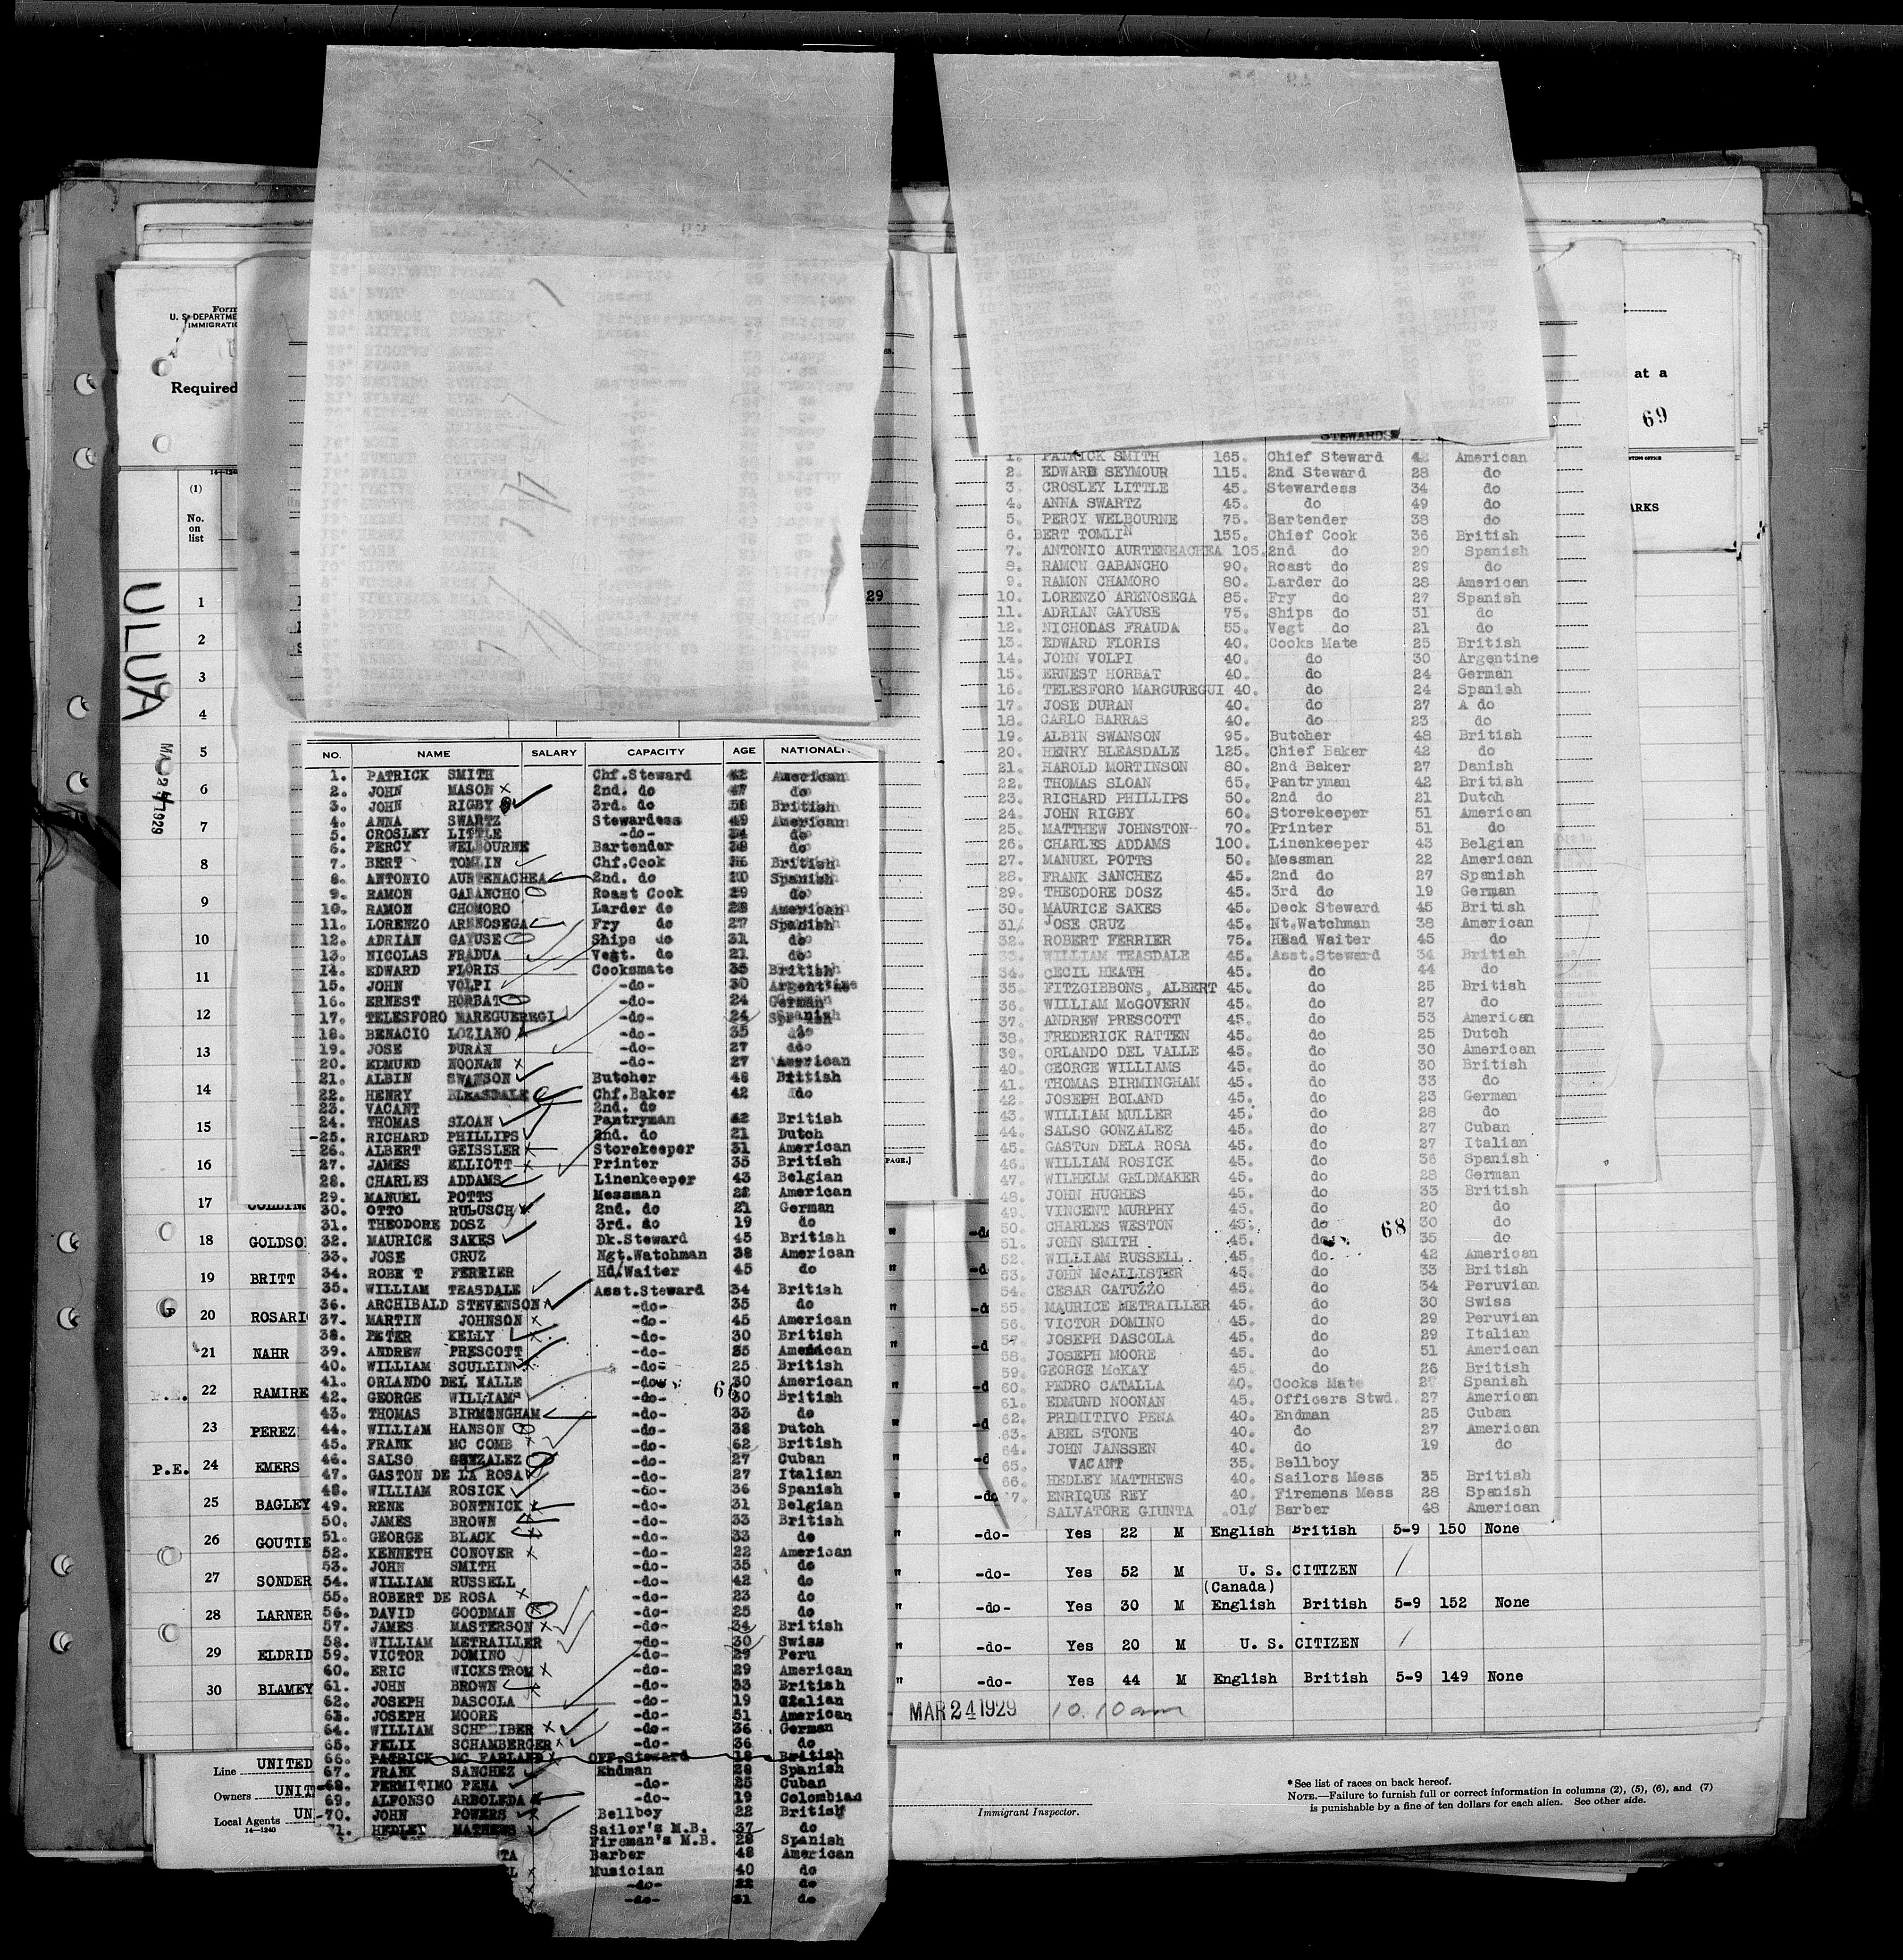 Form
U. S. DEPARTME
IMMIGRATI
Required
at a
69
14-1240
(1)
No.
on
list
ARKS
ULUA
MAR 24 1929
29
1
2
3
4
5
6
7
8
9
10
11
12
13
14
15
16
17
18 GOLDSO
19 BRITT
20 ROSARI
21 NAHR
P.E. 22 RAMIRE
23 PEREZ
P.E. 24 EMERS
25 BAGLEY
26 GOUTIE
27 SONDER
28 LARNER
29 ELDRID
30 BLAMEY
Line UNITED
Owners UNIT
Local Agents UN
14-1240
NO. NAME SALARY CAPACITY AGE NATIONALI
1. PATRICK SMITH Chf.Steward 42 American
2. JOHN MASON x 2nd. do 47 do
3. JOHN RIGBY 3rd. do 58 British
4. ANNA SWARTZ Stewardess 49 American
5. CROSLEY LITTLE -do- 34 do
6. PERCY WELBOURNE Bartender 38 do
7. BERT TOMLIN Chf.Cook 36 British
8. ANTONIO AURTENACHEA 2nd. do 20 Spanish
9. RAMON GABANCHO Roast Cook 29 do
10. RAMON CHOMORO Larder do 28 American
11. LORENZO ARENOSEGA Fry do 27 Spanish
12. ADRIAN GAYUSE Ships do 31 do
13. NICOLAS FRADUA Vegt. do 21 do
14. EDWARD FLORIS Cooksmate 35 British
15. JOHN VOLPI -do- 30 Argentine
16. ERNEST HORBAT -do- 24 German
17. TELESFORO MAREGUEREGI -do- 24 Spanish
18. BENACIO LOZIANO -do- 35 do
19. JOSE DURAN -do- 27 do
20. EDMUND NOONAN x -do- 27 American
21. ALBIN SWANSON Butcher 48 British
22. HENRY BLEASDALE Chf.Baker 42 do
23. VACANT 2nd. do
24. THOMAS SLOAN Pantryman 42 British
25. RICHARD PHILLIPS 2nd. do 21 Dutch
26. ALBERT GEISSLER x Storekeeper 31 American
27. JAMES ELLIOTT x Printer 35 British
28. CHARLES ADDAMS Linenkeeper 43 Belgian
29. MANUEL POTTS Messman 22 American
30. OTTO RULUSCH 2nd. do 21 German
31. THEODORE DOSZ 3rd. do 19 do
32. MAURICE SAKES Dk.Steward 45 British
33. JOSE CRUZ Ngt.Watchman 38 American
34. ROBE T FERRIER Hd/Waiter 45 do
35. WILLIAM TEASDALE Asst.Steward 34 British
36. ARCHIBALD STEVENSON -do- 35 do
37. MARTIN JOHNSON x -do- 45 American
38. PETER KELLY x -do- 30 British
39. ANDREW PRESCOTT -do- 55 American
40. WILLIAM SCULLIN -do- 25 British
41. ORLANDO DEL VALLE -do- 30 American
42. GEORGE WILLIAMS -do- 30 British
43. THOMAS BIRMINGHAM -do- 33 do
44. WILLIAM HANSON -do- 38 Dutch
45. FRANK MC COMB x -do- 62 British
46. SALSO GONZALEZ -do- 27 Cuban
47. GASTON DE LA ROSA -do- 27 Italian
48. WILLIAM ROSICK -do- 36 Spanish
49. RENE BONTNICK x -do- 31 Belgian
50. JAMES BROWN -do- 33 British
51. GEORGE BLACK -do- 33 do
52. KENNETH CONOVER x -do- 22 American
53. JOHN SMITH -do- 35 do
54. WILLIAM RUSSELL -do- 42 do
55. ROBERT DE ROSA x -do- 23 do
56. DAVID GOODMAN -do- 25 do
57. JAMES MASTERSON x -do- 34 British
58. WILLIAM METRAILLER -do- 30 Swiss
59. VICTOR DOMINO -do- 29 Peru
60. ERIC WICKSTROM x -do- 29 American
61. JOHN BROWN -do- 33 British
62. JOSEPH DASCOLA -do- 19 Italian
63. JOSEPH MOORE -do- 51 American
64. WILLIAM SCHREIBER x -do- 36 German
65. FELIX SCHAMBERGER x -do- 36 do
66. PATRICK MC FARLAND x Off.Steward 18 British
67. FRANK SANCHEZ Endman 28 Spanish
68. PERMITIMO PENA -do- 25 Cuban
69. ALFONSO ARBOLEDA -do- 19 Colombian
70. JOHN POWERS Bellboy 22 British
71. HEDLEY MATHEWS Sailor's M.B. 37 do
Fireman's M.B. 28 Spanish
TA Barber 48 American
x Musician 40 do
-do- 22 do
-do- 31 do
STEWARDS
1. PATRICK SMITH 165. Chief Steward 42 American
2. EDWARD SEYMOUR 115. 2nd Steward 28 do
3. CROSLEY LITTLE 45. Stewardess 34 do
4. ANNA SWARTZ 45. do 49 do
5. PERCY WELBOURNE 75. Bartender 38 do
6. BERT TOMLIN 155. Chief Cook 36 British
7. ANTONIO AURTENEACHEA 105. 2nd do 20 Spanish
8. RAMON GABANCHO 90. Roast do 29 do
9. RAMON CHAMORO 80. Larder do 28 American
10. LORENZO ARENOSEGA 85. Fry do 27 Spanish
11. ADRIAN GAYUSE 75. Ships do 31 do
12. NICHOLAS FRAUDA 55. Vegt do 21 do
13. EDWARD FLORIS 40. Cooks Mate 25 British
14. JOHN VOLPI 40. do 30 Argentine
15. ERNEST HORBAT 40. do 24 German
16. TELESFORO MARGUREGUI 40. do 24 Spanish
17. JOSE DURAN 40. do 27 A do
18. CARLO BARRAS 40. do 23 do
19. ALBIN SWANSON 95. Butcher 48 British
20. HENRY BLEASDALE 125. Chief Baker 42 do
21. HAROLD MORTINSON 80. 2nd Baker 27 Danish
22. THOMAS SLOAN 65. Pantryman 42 British
23. RICHARD PHILLIPS 50. 2nd do 21 Dutch
24. JOHN RIGBY 60. Storekeeper 51 American
25. MATTHEW JOHNSTON 70. Printer 51 do
26. CHARLES ADDAMS 100. Linenkeeper 43 Belgian
27. MANUEL POTTS 50. Messman 22 American
28. FRANK SANCHEZ 45. 2nd do 27 Spanish
29. THEODORE DOSZ 45. 3rd do 19 German
30. MAURICE SAKES 45. Deck Steward 45 British
31. JOSE CRUZ 45. Nt.Watchman 38 American
32. ROBERT FERRIER 75. HEad Waiter 45 do
33. WILLIAM TEASDALE 45. Asst.Steward 34 British
34. CECIL HEATH 45. do 44 do
35. FITZGIBBONS, ALBERT 45. do 25 British
36. WILLIAM McGOVERN 45. do 27 do
37. ANDREW PRESCOTT 45. do 53 American
38. FREDERICK RATTEN 45. do 25 Dutch
39. ORLANDO DEL VALLE 45. do 30 American
40. GEORGE WILLIAMS 45. do 30 British
41. THOMAS BIRMINGHAM 45. do 33 do
42. JOSEPH BOLAND 45. do 23 German
43. WILLIAM MULLER 45. do 28 do
44. SALSO GONZALEZ 45. do 27 Cuban
45. GASTON DELA ROSA 45. do 27 Italian
46. WILLIAM ROSICK 45. do 36 Spanish
47. WILHELM GELDMAKER 45. do 28 German
48. JOHN HUGHES 45. do 33 British
49. VINCENT MURPHY 45. do 20 do
50. CHARLES WESTON 45. do 68 30 do
51. JOHN SMITH 45. do 35 do
52. WILLIAM RUSSELL 45. do 42 American
53. JOHN McALLISTER 45. do 33 British
54. CESAR GATUZZO 45. do 34 Peruvian
55. MAURICE METRAILLER 45. do 30 Swiss
56. VICTOR DOMINO 45. do 29 Peruvian
57. JOSEPH DASCOLA 45. do 29 Italian
58. JOSEPH MOORE 45. do 51 American
59. GEORGE McKAY 45. do 26 British
60. PEDRO CATALLA 40. Cooks Mate 27 Spanish
61. EDMUND NOONAN 45. Officers Stwd. 27 American
62. PRIMITIVO PENA 40. Endman 25 Cuban
63. ABEL STONE 40. do 27 American
64. JOHN JANSSEN 40. do 19 do
65. VACANT 35. Bellboy
66. HEDLEY MATTHEWS 40. Sailors Mess 35 British
7. ENRIQUE REY 40. Firemens Mess 28 Spanish
SALVATORE GIUNTA .01¢ Barber 48 American
PAGE.]
" -do- Yes 22 M English British 5-9 150 None
" -do- Yes 52 M U. S. CITIZEN /
(Canada)
" -do- Yes 30 M English British 5-9 152 None
" -do- Yes 20 M U. S. CITIZEN /
" -do- Yes 44 M English British 5-9 149 None
MAR 24 1929 10.10am
Immigrant Inspector.
*See list of races on back hereof.
NOTE.—Failure to furnish full or correct information in columns (2), (5), (6), and (7)
is punishable by a fine of ten dollars for each alien. See other side.